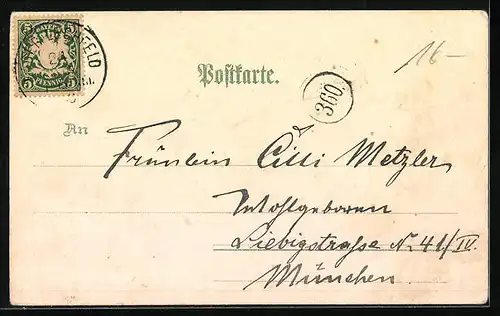 5 5
PFENNIG
FELD
16-
Postkarte.
300.
An
Fräulein Cilli Metzler,
Wohlgeboren
Liebigstraße Nr. 41/IV.
München.